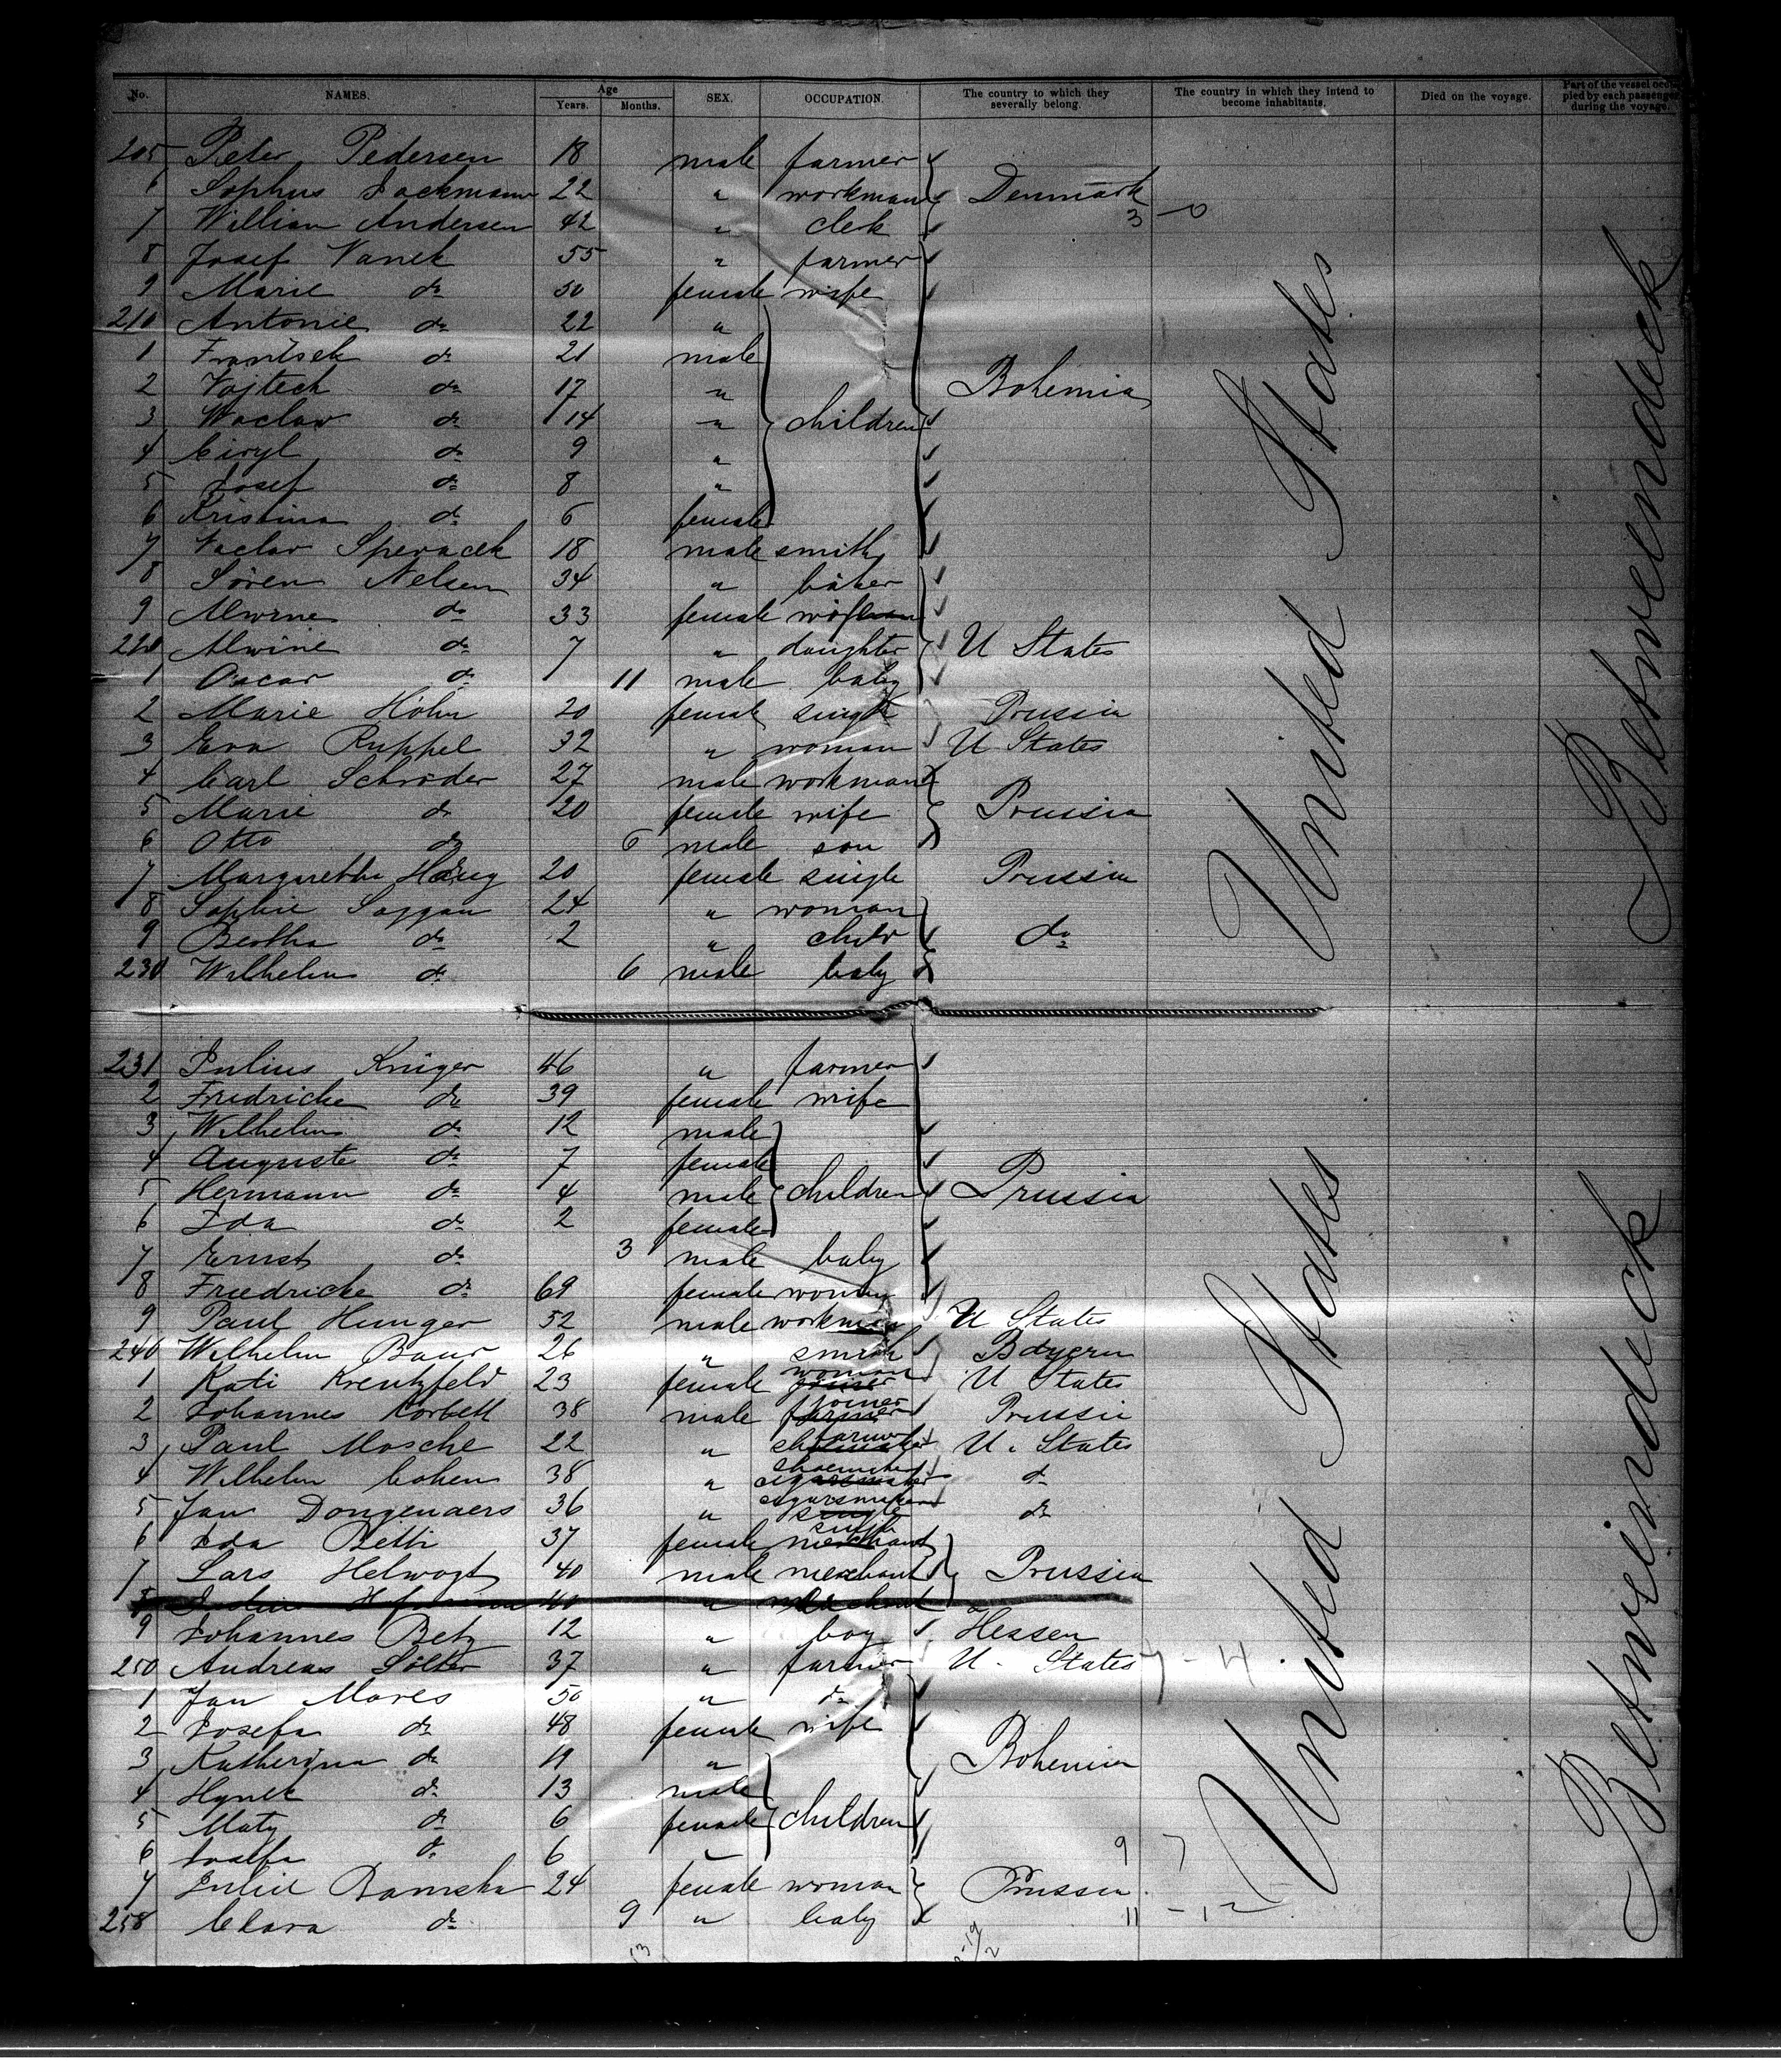 No. NAMES. Age Years. Months. SEX. OCCUPATION. The country to which they severally belong. The country in which they intend to become inhabitants. Died on the voyage. Part of the vessel occupied by each passenger during the voyage.
205 Peter Pedersen 18 male farmer
6 Sophus 22 " workman Denmark
7 William Andersen 42 " clerk 3 - 0
8 Josef Vanek 55 " farmer
9 Marie do 50 female wife
210 Antonie do 22 "
1 Frantisek do 21 male
2 Vojtech do 17 " Bohemia
3 Waclav do 14 " children
4 Ciryl do 9 "
5 Josef do 8 "
6 Kristina do 6 female
7 Vaclav Speracek 18 male smith
8 Sören Nelsen 34 " baker
9 Alwine do 33 female wife
220 Alwine do 7 " daughter U States
1 Oscar do 11 male baby
2 Marie Höhn 20 female single Prussia
3 Eva Ruppel 32 " woman U States
4 Carl Schröder 27 male workman
5 Marie do 20 female wife Prussia
6 Otto do 6 male son
7 Margarethe 20 female single Prussia
8 Sophie Saggau 24 " woman
9 Bertha do 2 " child do
230 Wilhelm do 6 male baby
United States
Betweendeck
231 Julius Krüger 46 " farmer
2 Friedricke do 39 female wife
3 Wilhelm do 12 male
4 Auguste do 7 female
5 Hermann do 4 male children Prussia
6 Ida do 2 female
7 Ernst do 3 male baby
8 Friedricke do 69 female woman
9 Paul Hunger 52 male workman U States
240 Wilhelm Baur 26 " smith Bayern
1 Kati Kreutzfeld 23 female woman U States
2 Johannes Korbell 38 male joiner farmer Prussia
3 Paul Mosche 22 " farmer shoemaker U. States
4 Wilhelm Cohen 38 " shoemaker cigarsmaker do
5 Jan Dongenaers 36 " cigarsmaker single do
6 Ida Betti 37 female single merchant
7 Lars Helwogt 40 male merchant Prussia
8 40 " merchant
9 Johannes Betz 12 " boy Hessen
250 Andreas Sölter 37 " farmer U. States 7 - 4
1 Jan Mares 50 " do
2 Josefa do 48 female wife
3 Katherina do 19 " Bohemia
4 Hynek do 13 male
5 Maty do 6 female children
6 do 6 " 9 7
7 Julie Bamska 24 female woman Prussia
258 Clara do 9 " baby 11 - 12
United States
Betweendeck
13